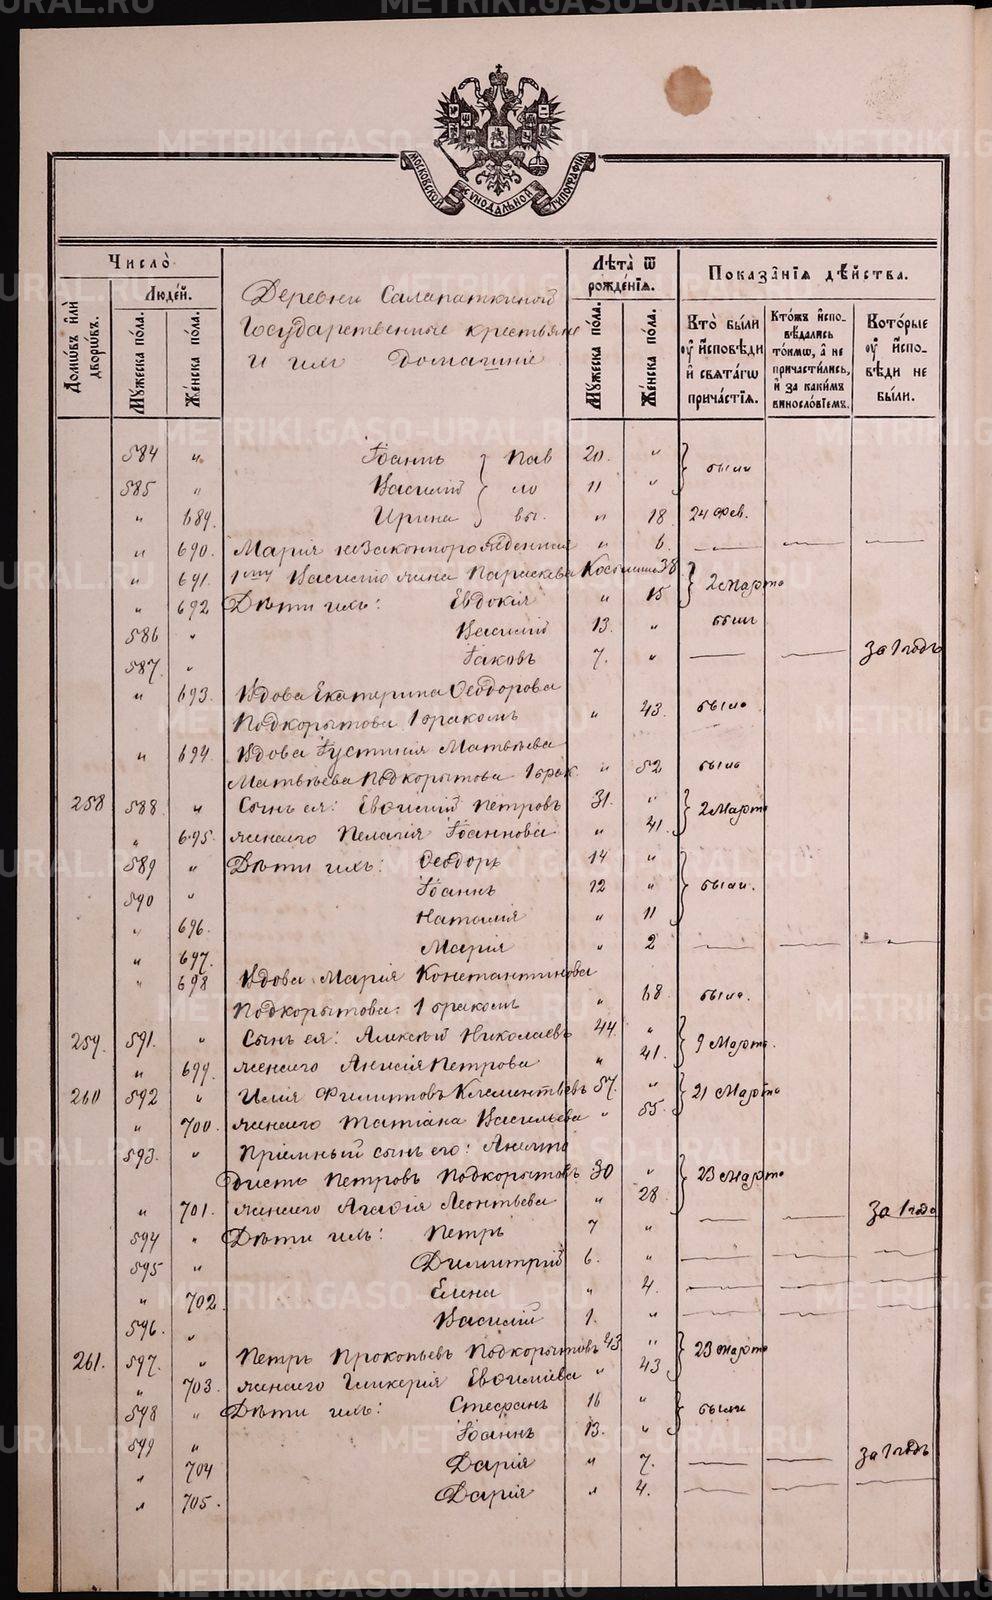 МОСКОВСКОЙ СѴНОДАЛЬНОЙ ТИПОГРАФІИ
Число̀
Лѣта̀ ѿ рожде́нїѧ.
Показа̑нїѧ дѣ́йства.
Домѡ́въ и҆лѝ дворѡ́въ.
Люде́й.
Мꙋ́жеска по́ла.
Же́нска по́ла.
Деревни Салапаткиной
Государственные крестьяне
и ихъ домашніе
Мꙋ́жеска по́ла.
Же́нска по́ла.
Кто̀ бы́ли оу҆ и҆сповѣ́ди и҆ свѧта́гѡ прича́стїѧ.
Кто́жъ и҆сповѣ́дались то́кмѡ, а҆ не причасти́лись, и҆ за каки́мъ винosло́вїемъ.
Кото́рые оу҆ и҆сповѣ́ди не бы́ли.
584 " Іоаннъ } Пав 20. " } были
585 " Василій } ло 11 "
" 689. Ирина } вы. " 18. 24 Фев.
" 690. Марія незаконнорожденная " 6. — — —
" 691. 1му Василію жена Параскева 38 } 2 Марта
" 692 Дѣти ихъ: Евдокія " 15
586 " Василій 13. " были
587. " Іаковъ 7. " — — За 1 годъ
" 693. Вдова Екатерина Ѳеодорова
Подкорытова 1 бракомъ " 43. была
" 694. Вдова Іустинія Матвѣева
Матвѣева Подкорытова 1 брак. " 52 была
258 588 " Сынъ ея: Евѳимій Петровъ 31. " } 2 Марта
" 695. жена его Пелагія Іоаннова " 41.
589 " Дѣти ихъ: Ѳеодоръ 14 " } были.
590 " Іоаннъ 12 "
" 696. Наталія " 11
" 697. Марія " 2 — — —
" 698 Вдова Марія Константинова
Подкорытова: 1 бракомъ " 68. была.
259. 591. " Сынъ ея: Алексѣй Николаевъ 44. " } 9 Марта.
" 699. жена его Анисія Петрова " 41.
260 592 " Илія Филипповъ Клементьевъ 57. " } 21 Марта
" 700. жена его Татіана Васильева " 55.
593. " Пріемный сынъ его: Анемпо
дистъ Петровъ Подкорытовъ 30 " } 23 Марта
" 701. жена его Агаѳія Леонтьева " 28.
594 " Дѣти ихъ: Петръ 7 " — — За 1 годъ
595 " Димитрій 6. " — — —
" 702. Елена " 4. — — —
596. " Василій 1. " — — —
261. 597. " Петръ Прокопьевъ Подкорытовъ 43 " } 23 Марта
" 703. жена его Гликерія Евѳиміева " 43.
598 " Дѣти ихъ: Стефанъ 16 " } были
599 " Іоаннъ 13. "
" 704 Дарія " 7. — — За 1 годъ
" 705. Дарія " 4. — — —
METRIKI.GASO-URAL.RU